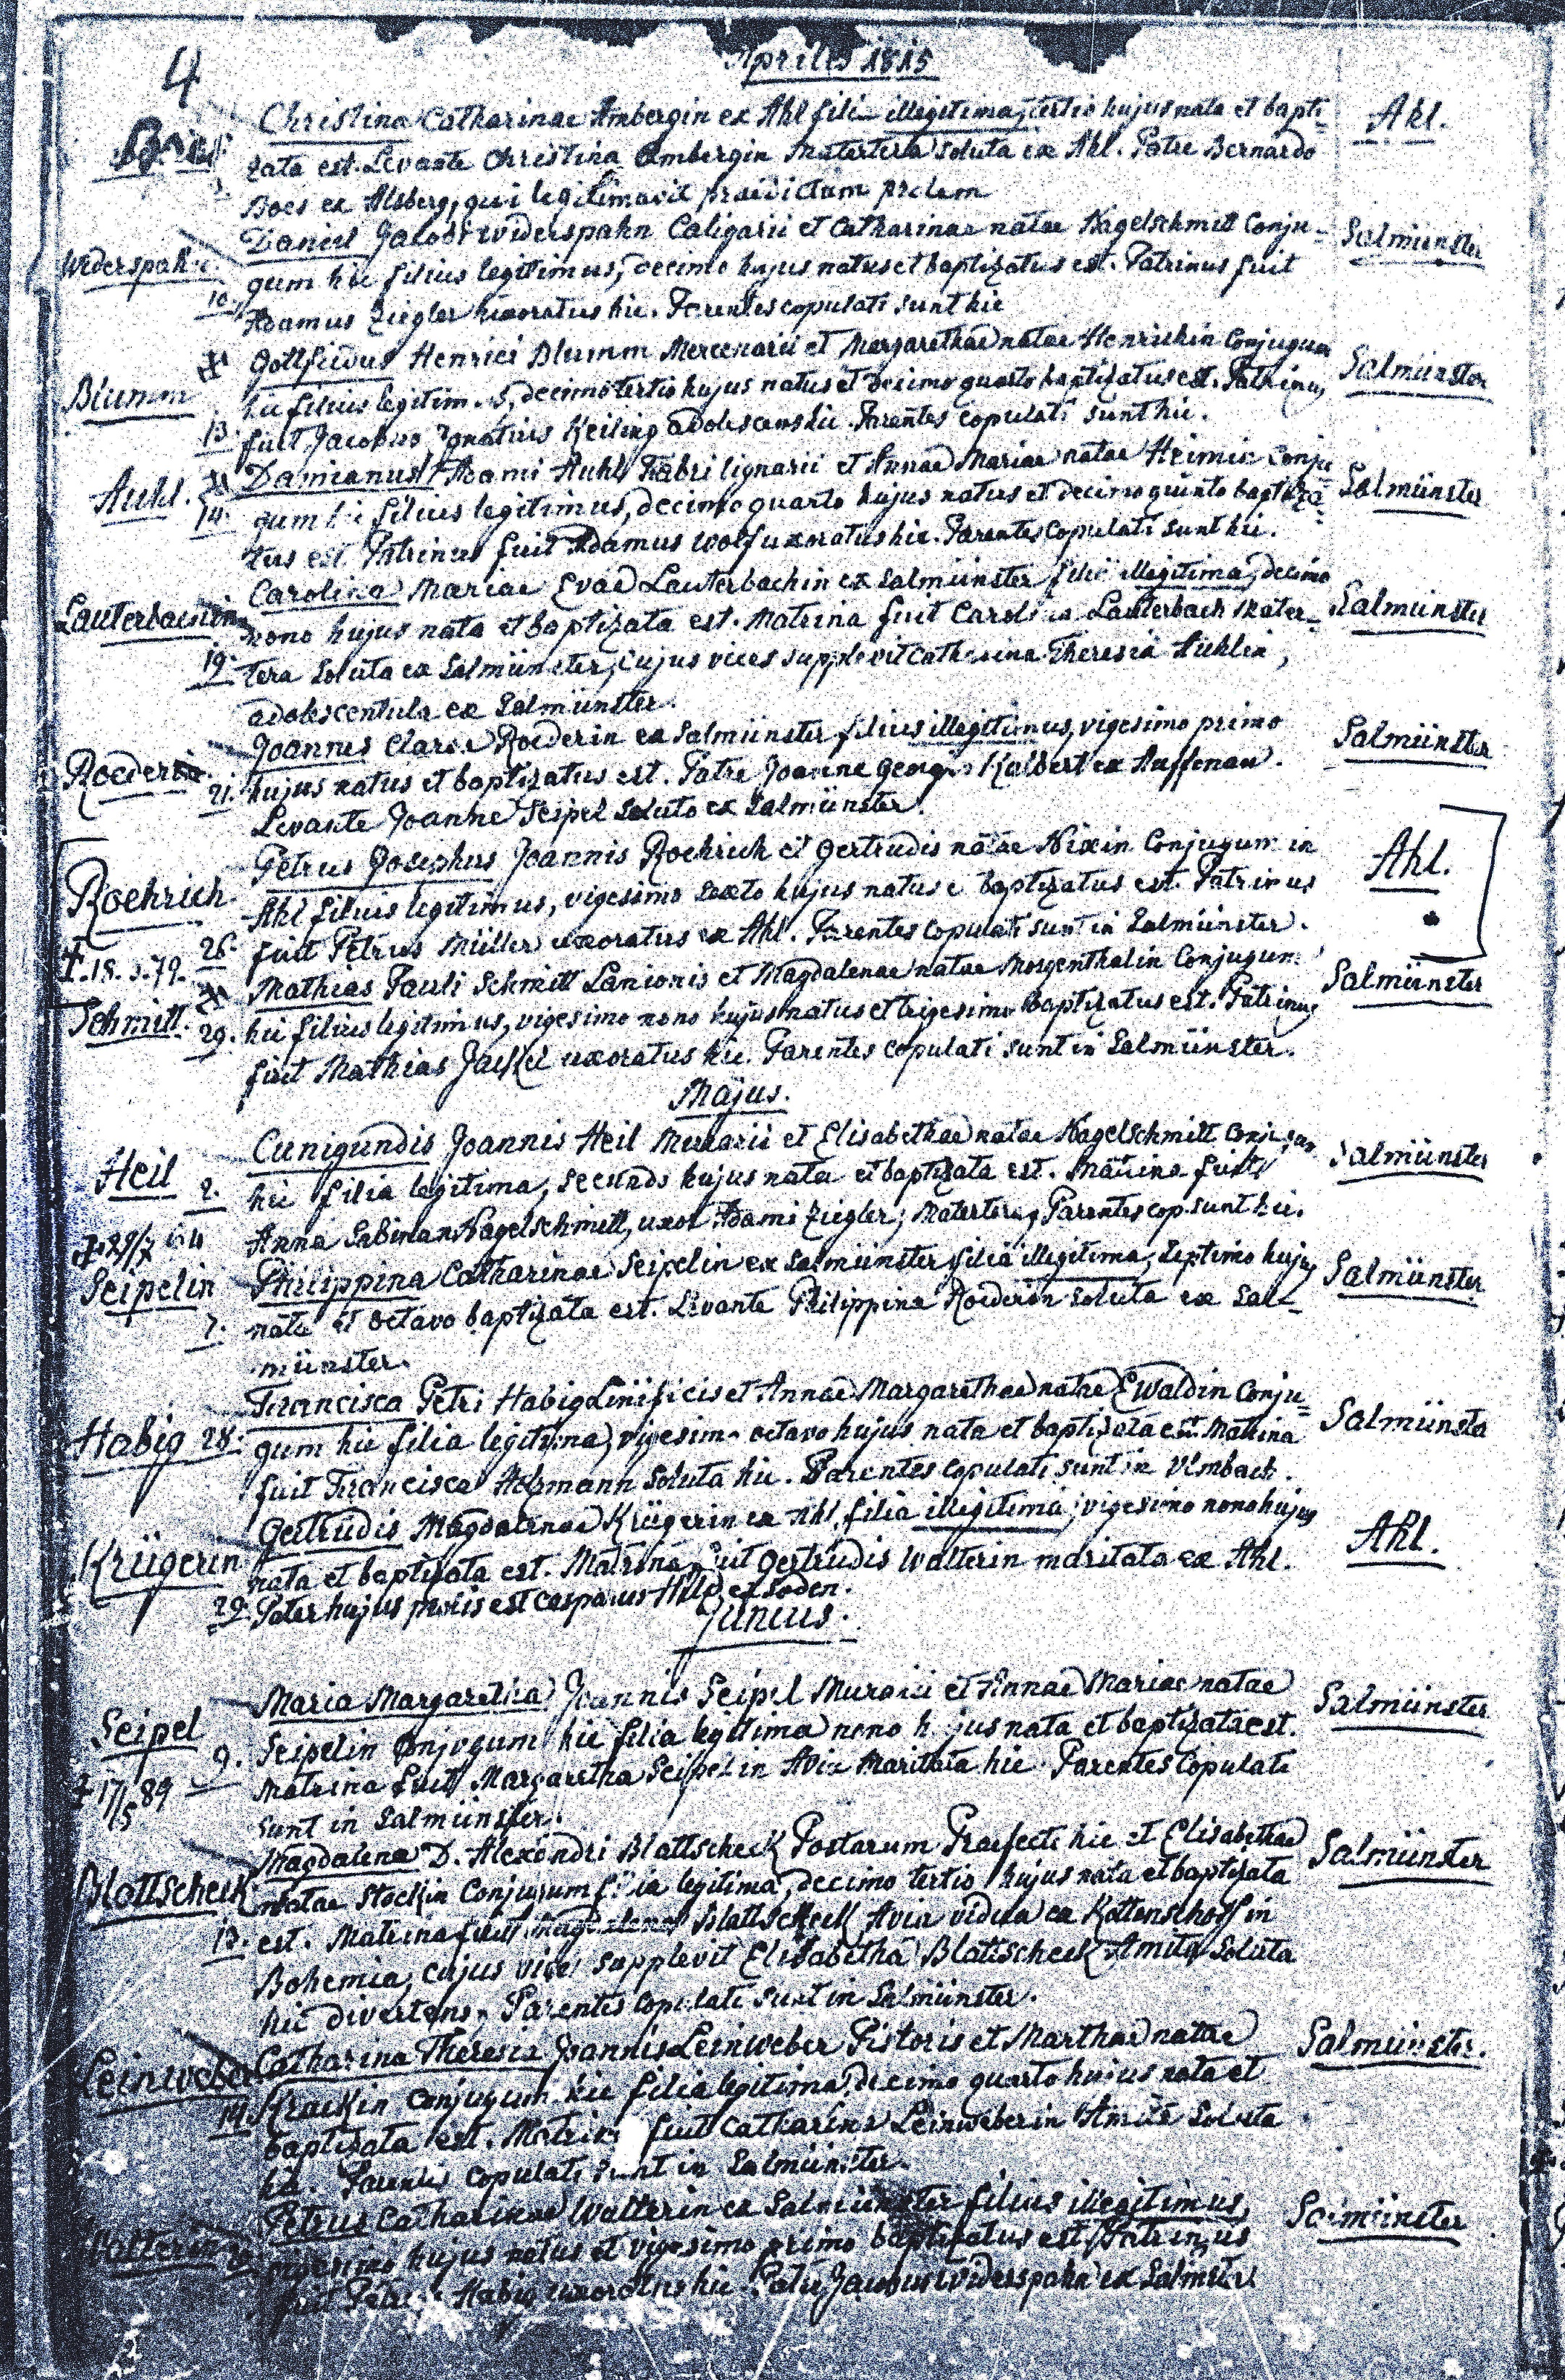 4
Aprilis 1815
Christina Catharinae Ambergin ex Ahl filia illegitima, tertio hujus nata et bapti-
Ahl.
zata est. Levante Christina Ambergin Matertera soluta ex Ahl. Patre Bernardo
3.
Boes ex Alsberg, qui legitimavit praedictam prolem
Daniel Jacobi Widerspahn Caligarii et Catharinae natae Nagelschmitt Conju-
Salmünster
Widerspahn.
gum hic filius legitimus, decimo hujus natus et baptizatus est. Patrinus fuit
10.
Adamus Ziegler uxoratus hic. Parentes copulati sunt hic
Gottfridus Henrici Blumm Mercenarii et Margarethae natae Henrichin Conjugum
Salmünster
Blumm
hic filius legitimus, decimo tertio hujus natus et decimo quarto baptizatus est. Patrinus
13.
fuit Jacobus Ignatius Keiling adolescens hic. Parentes copulati sunt hic.
Damianus Adami Auhl Fabri lignarii et Annae Mariae natae Heimin Conju
Salmünster
Auhl.
14.
gum hic filius legitimus, decimo quarto hujus natus et decimo quinto baptiza-
tus est Patrinus fuit Adamus Wolf uxoratus hic. Parentes copulati sunt hic.
Carolina Mariae Evae Lauterbachin ex Salmünster filia illegitima, decimo
Salmünster
Lauterbachin
nono hujus nata et baptizata est. Matrina fuit Carolina Lauterbach Mater-
19.
tera soluta ex Salmünster, cujus vices supplevit Catharina Theresia Auhlin,
adolescentula ex Salmünster.
Joannes Clarae Roederin ex Salmünster filius illegitimus, vigesimo primo
Salmünster
Roederin
21.
hujus natus et baptizatus est. Patre Joanne Georgio Kalbert ex Auffenau.
Levante Joanne Seipel soluto ex Salmünster.
Petrus Josephus Joannis Roehrich et Gertrudis natae Nixin Conjugum in
Ahl.
Roehrich.
Ahl filius legitimus, vigesimo sexto hujus natus et baptizatus est. Patrinus
26.
fuit Petrus Müller uxoratus ex Ahl. Parentes copulati sunt in Salmünster.
†.18.3.79.
Mathias Pauli Schmitt Lanionis et Magdalenae natae Morgenthalin Conjugum
Salmünster
Schmitt.
29.
hic filius legitimus, vigesimo nono hujus natus et trigesimo baptizatus est. Patrinus
fuit Mathias Jackel uxoratus hic. Parentes copulati sunt in Salmünster.
Majus.
Cunigundis Joannis Heil Murarii et Elisabethae natae Nagelschmitt Conjugum
Salmünster
Heil
2.
hic filia legitima, secundo hujus nata et baptizata est. Matrina fuit
Anna Sabina Nagelschmitt, uxor Adami Ziegler, Matertera, Parentes cop. sunt hic.
Seipelin
Philippina Catharinae Seipelin ex Salmünster filia illegitima, septimo hujus
Salmünster
7.
nata et octavo baptizata est. Levante Philippina Roederin soluta ex Sal-
münster.
Francisca Petri Habig Linificis et Annae Margarethae natae Ewaldin Conju-
Salmünster
Habig 28.
gum hic filia legitima, vigesimo octavo hujus nata et baptizata est. Matrina
fuit Francisca soluta hic. Parentes copulati sunt in Ulmbach.
Gertrudis Magdalenae Krügerin ex Ahl, filia illegitima, vigesimo nono hujus
Ahl.
Krügerin
nata et baptizata est. Matrina fuit Gertrudis Walterin maritata ex Ahl.
29.
Pater hujus prolis est Casparus Hild ex Soden.
Junius.
Maria Margaretha Joannis Seipel Murarii et Annae Mariae natae
Salmünster
Seipel
9.
Seipelin Conjugum hic filia legitima nono hujus nata et baptizata est.
Matrina fuit Margaretha Seipelin Avia Maritata hic. Parentes Copulati
† 17/5 89
sunt in Salmünster.
Magdalena D. Alexandri Blattscheck Postarum Praefecti hic et Elisabethae
Salmünster
Blattscheck
natae Stockin Conjugum filia legitima, decimo tertio hujus nata et baptizata
13.
est. Matrina fuit Magdalena Blattscheck Avia vidua ex Kottenschoff in
Bohemia, cujus vices supplevit Elisabetha Blattscheck Amita soluta
hic divertens, Parentes copulati sunt in Salmünster.
Catharina Theresia Joannis Leinweber Pistoris et Marthae natae
Salmünster.
Leinweber
14.
Strackin Conjugum hic filia legitima, decimo quarto hujus nata et
baptizata est. Matrina fuit Catharina Leinweberin Amita Soluta
hic. Parentes copulati sunt in Salmünster.
Petrus Catharinae Walterin ex Salmünster filius illegitimus,
Salmünster
Walterin
20.
vigesimo hujus natus et vigesimo primo baptizatus est, Patrinus
fuit Petrus Habig uxoratus hic. Patre Jacobus Widerspahn ex Salmster.